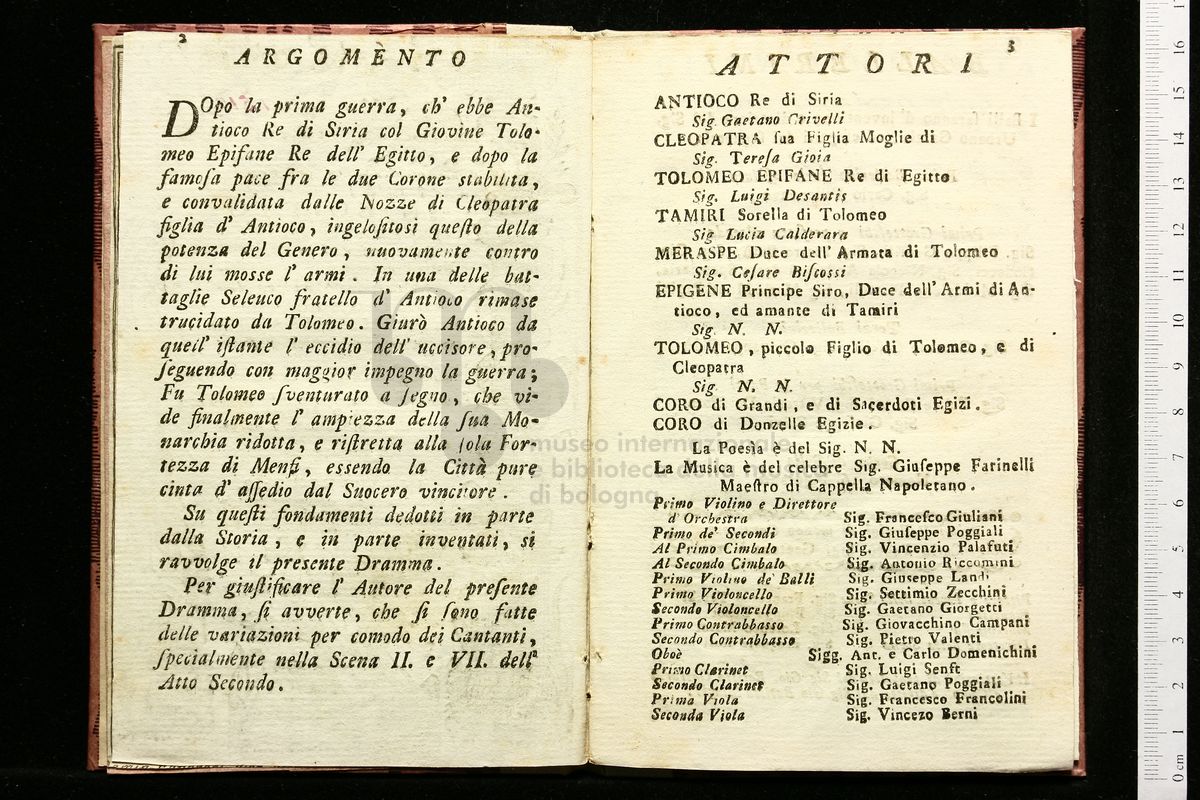 2
ARGOMENTO
DOpo la prima guerra, ch' ebbe An-
tioco Re di Siria col Giovine Tolo-
meo Epifane Re dell' Egitto, e dopo la
famoſa pace fra le due Corone stabilita,
e convalidata dalle Nozze di Cleopatra
figlia d' Antioco, ingeloſitosi queſto della
potenza del Genero, nuovamente contro
di lui mosse l' armi. In una delle bat-
taglie Seleuco fratello d' Antioco rimase
trucidato da Tolomeo. Giurò Antioco da
quell' iſtante l' eccidio dell' uccisore, pro-
ſeguendo con maggior impegno la guerra;
Fu Tolomeo ſventurato a ſegno, che vi-
de finalmente l' ampiezza della ſua Mo-
narchia ridotta, e riſtretta alla ſola For-
tezza di Menfi, essendo la Città pure
cinta d' aſſedio dal Suocero vincitore.
Su queſti fondamenti dedotti in parte
dalla Storia, e in parte inventati, si
ravvolge il presente Dramma.
Per giuſtificare l' Autore del preſente
Dramma, ſi avverte, che ſi ſono fatte
delle variazioni per comodo dei Cantanti,
ſpecialmente nella Scena II. e VII. dell'
Atto Secondo.
3
ATTORI
ANTIOCO Re di Siria
Sig. Gaetano Crivelli
CLEOPATRA ſua Figlia Moglie di
Sig. Tereſa Gioia
TOLOMEO EPIFANE Re di Egitto
Sig. Luigi Desantis
TAMIRI Sorella di Tolomeo
Sig Lucia Calderara
MERASPE Duce dell' Armata di Tolomeo
Sig. Ceſare Biſcossi
EPIGENE Principe Siro, Duce dell' Armi di An-
tioco, ed amante di Tamiri
Sig. N. N.
TOLOMEO, piccolo Figlio di Tolomeo, e di
Cleopatra
Sig. N. N.
CORO di Grandi, e di Sacerdoti Egizi.
CORO di Donzelle Egizie.
La Poesia è del Sig. N. N.
La Musica è del celebre Sig. Giuſeppe Farinelli
Maeſtro di Cappella Napoletano.
Primo Violino e Direttore
d' Orcheſtra Sig. Franceſco Giuliani
Primo de' Secondi Sig. Giuſeppe Poggiali
Al Primo Cimbalo Sig. Vincenzio Palafuti
Al Secondo Cimbalo Sig. Antonio Riccomini
Primo Violino de' Balli Sig. Giuseppe Landi
Primo Violoncello Sig. Settimio Zecchini
Secondo Violoncello Sig. Gaetano Giorgetti
Primo Contrabbasso Sig. Giovacchino Campani
Secondo Contrabbasso Sig. Pietro Valenti
Oboè Sigg. Ant. e Carlo Domenichini
Primo Clarinet Sig. Luigi Senft
Secondo Clarinet Sig. Gaetano Poggiali
Prima Viola Sig. Francesco Francolini
Seconda Viola Sig. Vincezo Berni
museo internazionale
e biblioteca della musica
di bologna
0 cm 1 2 3 4 5 6 7 8 9 10 11 12 13 14 15 16